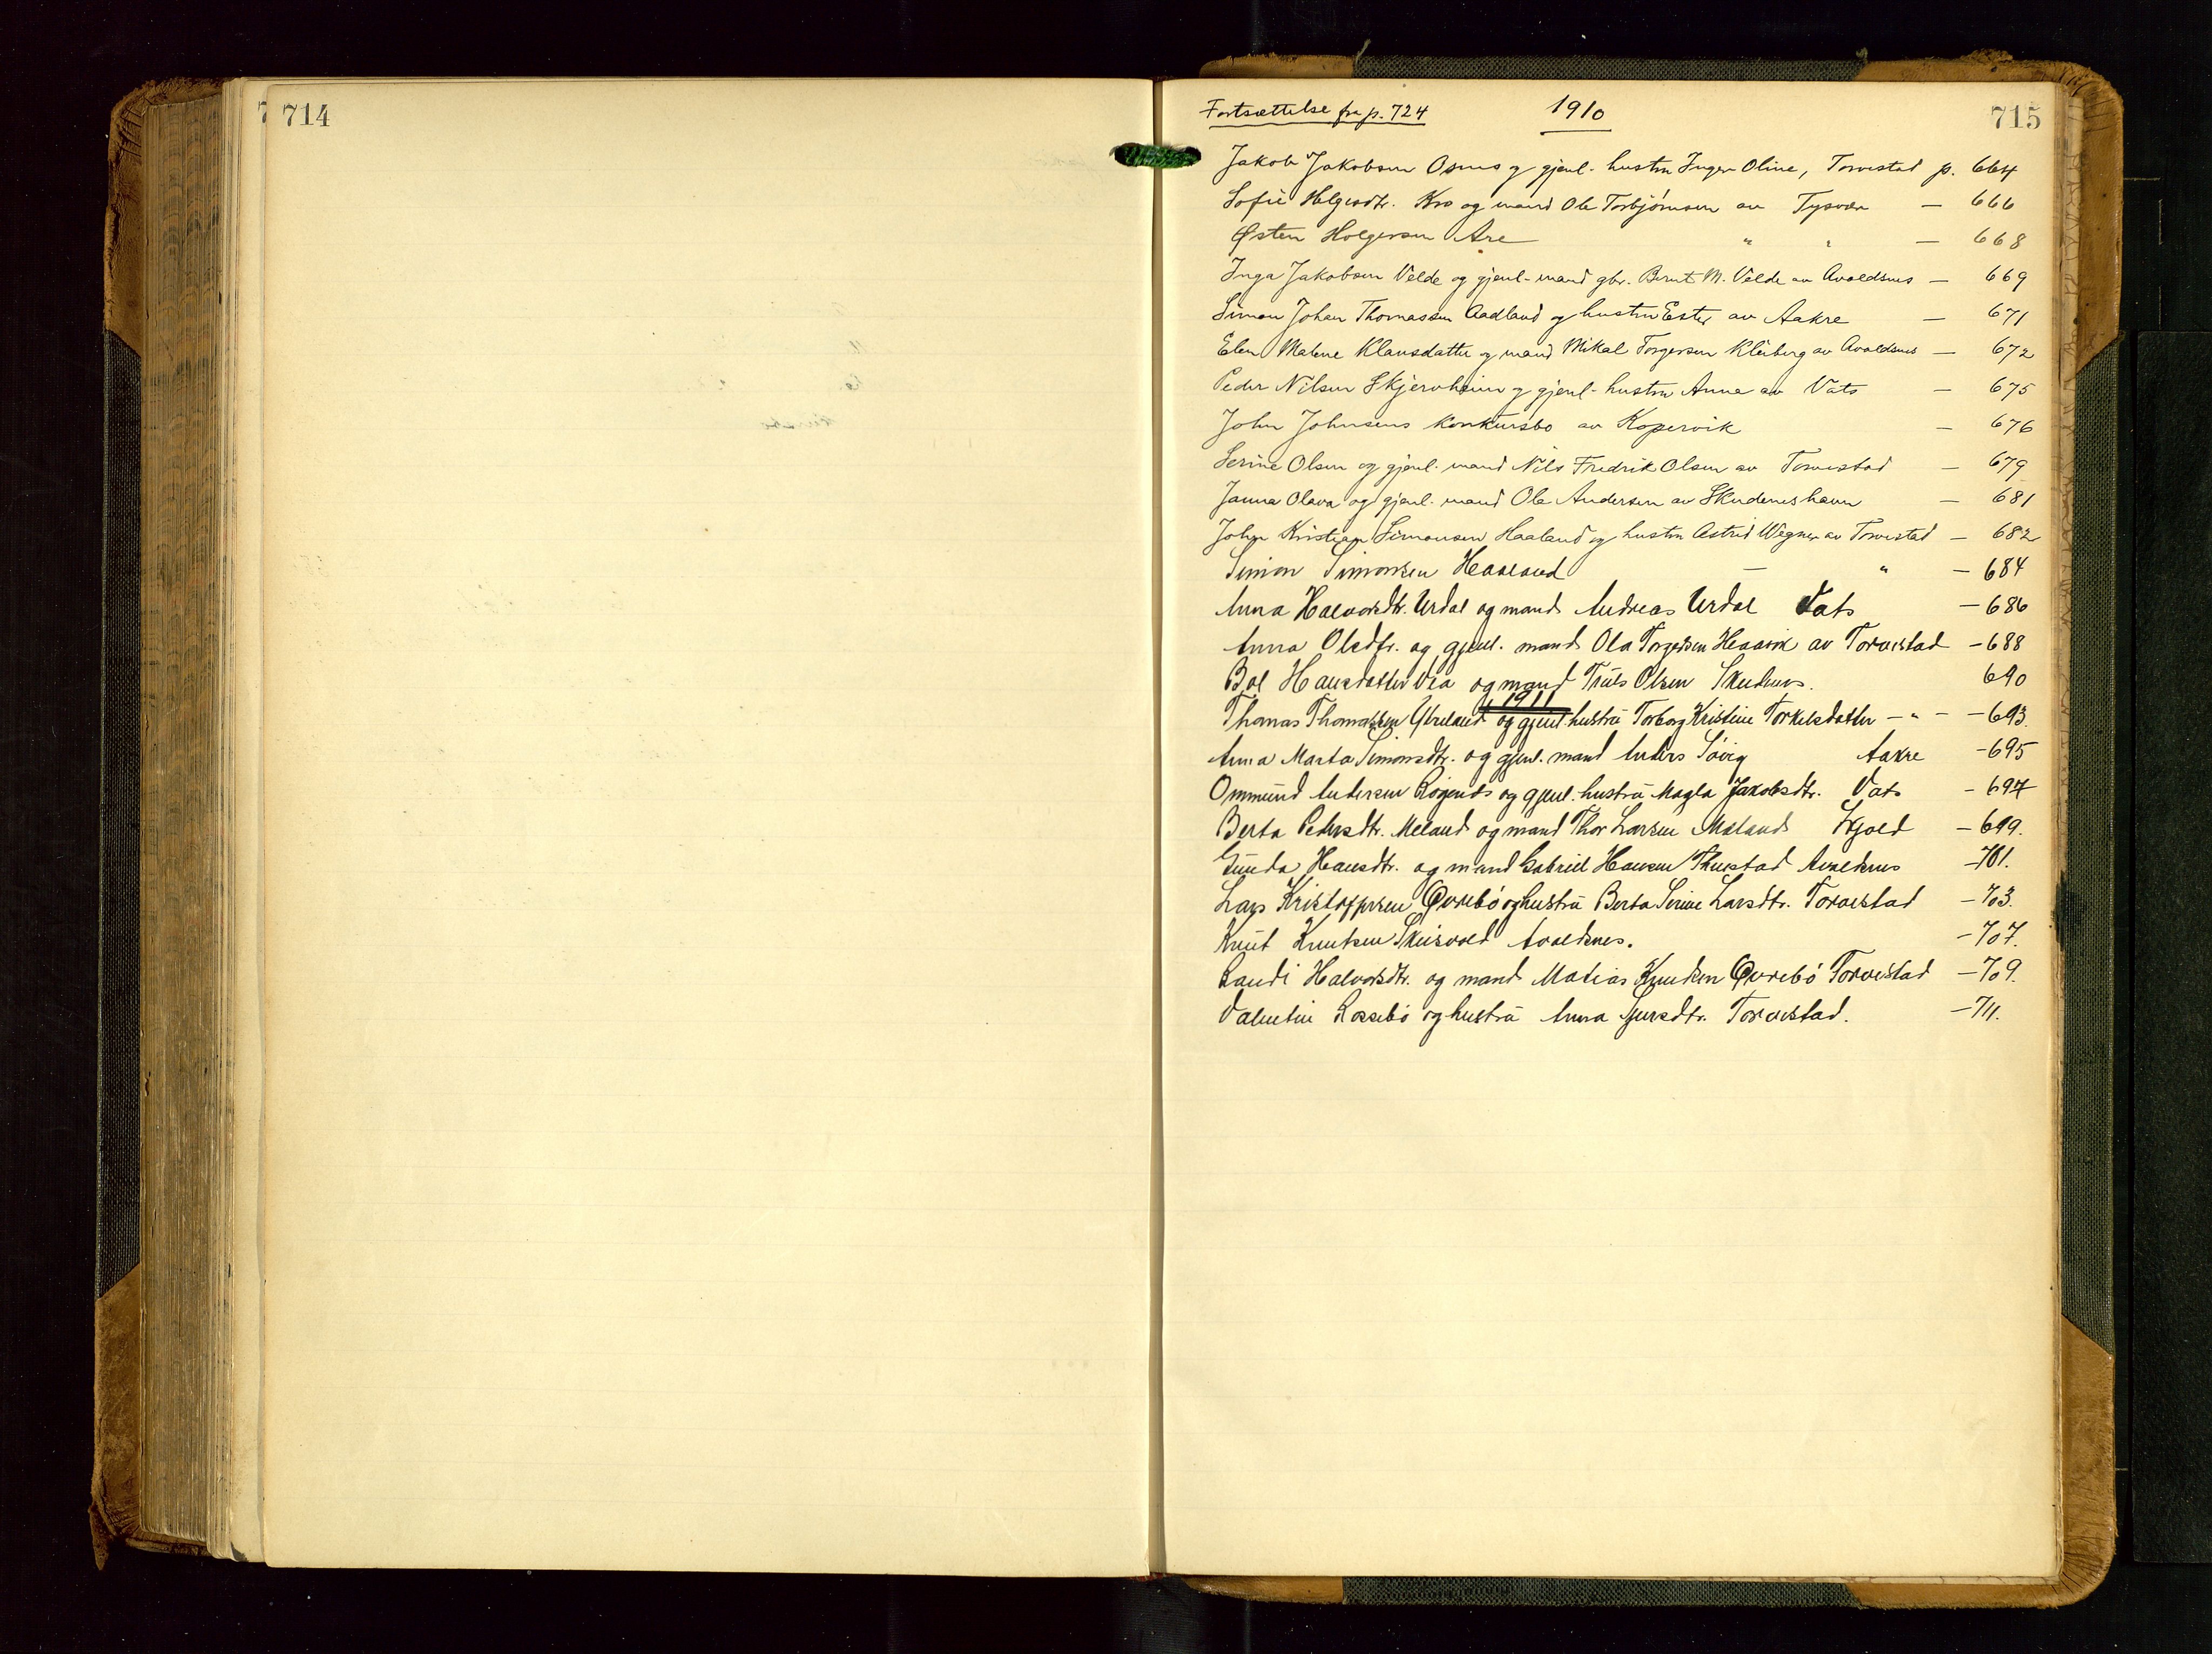 714
715
Fortsættelse fra p. 724
1910
Jakob Jakobsen Osnes og gjenl. hustru Inger Oline, Torvestad p. 664
Sofie Helgesdtr. Kro og mand Ole Torbjørnsen av Tysvær — 666
Østen Holgersen Are " " — 668
Inga Jakobsen Velde og gjenl. mand gbr. Bernt M. Velde av Avaldsnes — 669
Simon Johan Thomassen Aadland og hustru Ester av Aakre — 671
Elen Malene Klausdatter og mand Mikal Torgersen Kleiberg av Avaldsnes — 672
Peder Nilsen Skjervheim og gjenl. hustru Anna av Vats — 675
John Johnsens konkursbo av Kopervik — 676
Serine Olsen og gjenl. mand Nils Fredrik Olsen av Torvestad — 679
Janna Olava og gjenl. mand Ole Andersen av Skudeneshavn — 681
John Kristian Simonsen Haaland og hustru Astrid Wegner av Torvestad — 682
Simon Simonsen Haaland — " — 684
Anna Halvorsdtr. Urdal og mand Andreas Urdal Vats — 686
Anna Olsdtr. og gjenl. mand Ola Torgersen Haavik av Torvestad — 688
Bol Hansdatter Vea og mand Truls Olsen Skudenes. 690
1911
Thomas Thomassen Ytreland og gjenl. hustru Torborg Kristine Torkelsdatter — " — — 693.
Anna Marta Simonsdtr. og gjenl. mand Anders Aakre — 695
Ommund Andersen og gjenl. hustru Magla Jakobsdtr. Vats — 697
Berta Pedersdtr. Meland og mand Thor Larsen Mæland Skjold — 699.
Gunda Hansdtr. og mand Gabriel Hansen Thuestad Avaldsnes — 701.
Lars Kristoffersen Øvrebö og hustru Berta Serine Larsdtr. Torvestad — 703.
Knut Knutsen Skeisvold Avaldsnes. — 707.
Randi Halvorsdtr. og mand Matias Knudsen Øvrebö Torvestad — 709.
Valentin Rossebö og hustru Anna Torvestad. — 711.